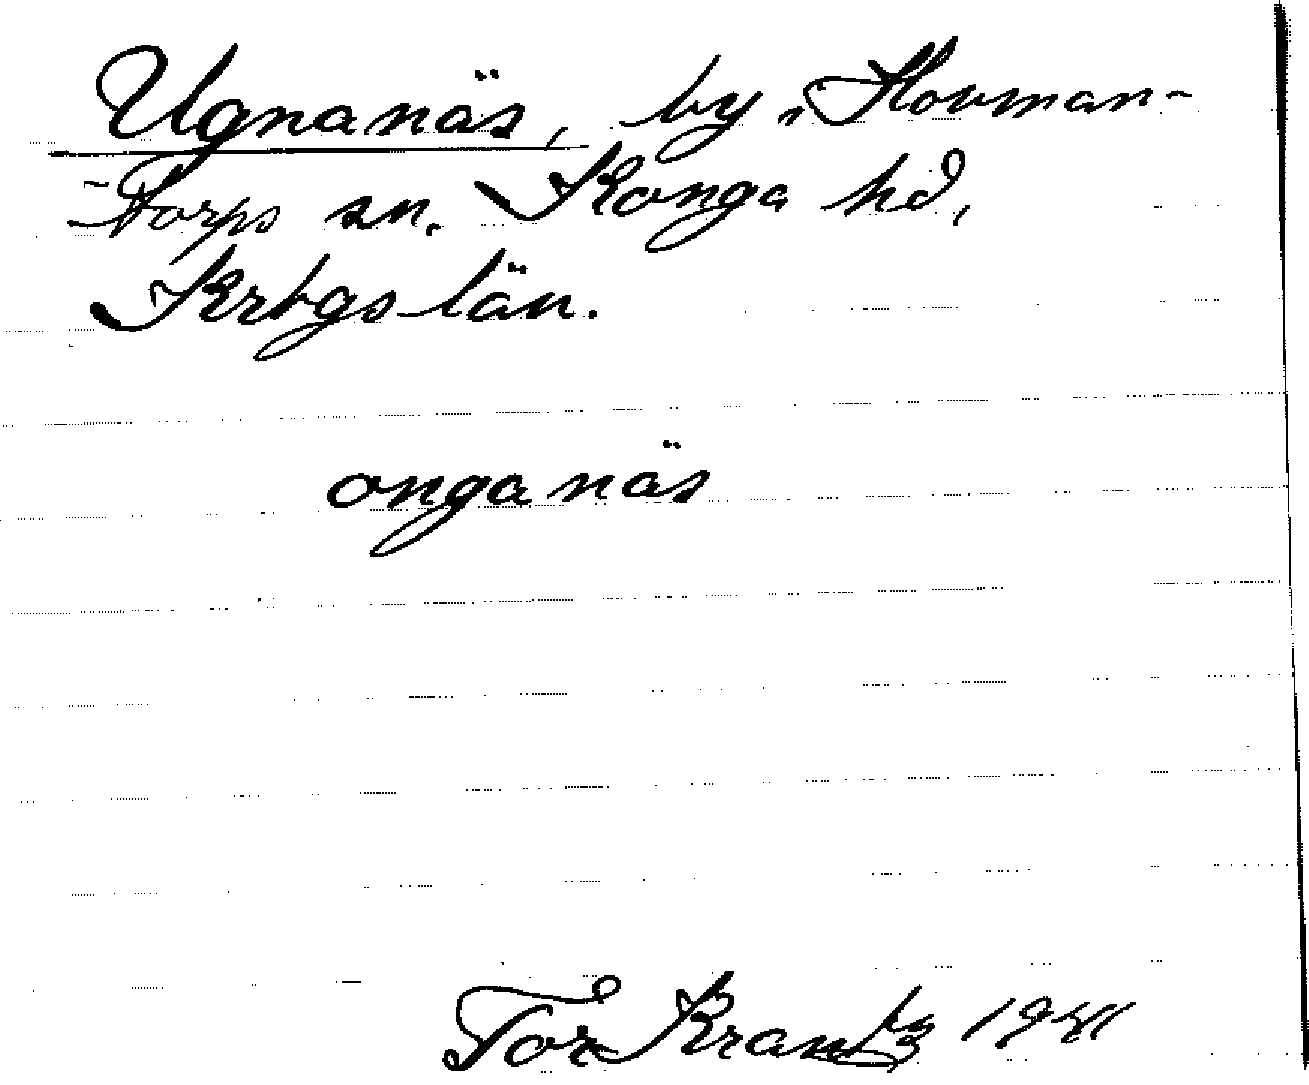 Ugnanäs, by, Hovman-
-torps sn. Konga hd,
Krbgs län.
onganäs
Tor Krantz 1931